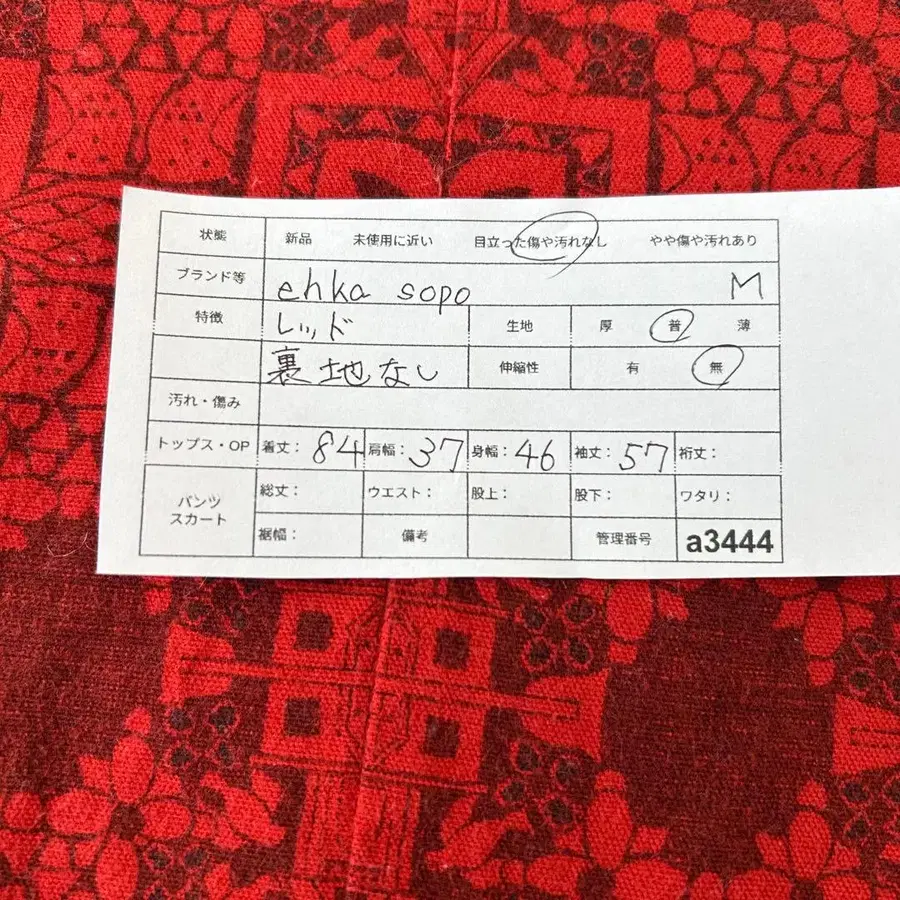 状態 新品 未使用に近い 目立った傷や汚れなし やや傷や汚れあり
ブランド等 ehka sopo M
特徴 レッド 生地 厚 普 薄
裏地なし 伸縮性 有 無
汚れ・傷み
トップス・OP 着丈: 84 肩幅: 37 身幅: 46 袖丈: 57 裄丈:
パンツ スカート 総丈: ウエスト: 股上: 股下: ワタリ:
裾幅: 備考 管理番号 a3444